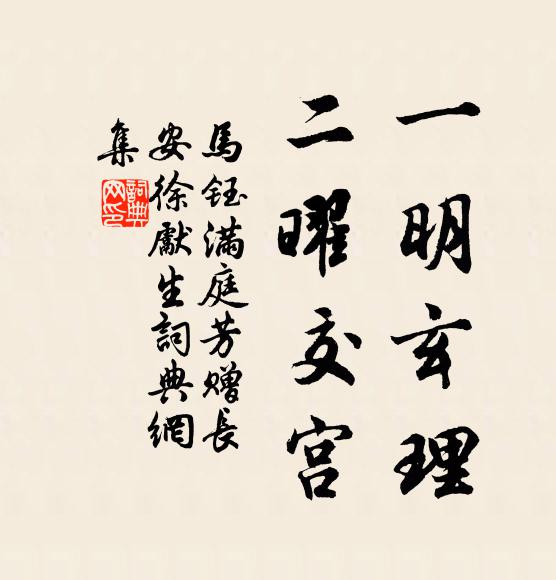 一明玄理
二曜交宫
馬鈺满庭芳赠長
安徐獻生詞典網
集
詞典
网印